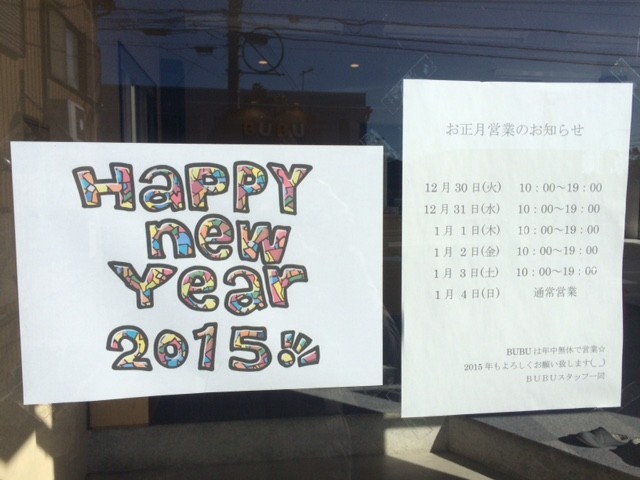 BUBU
Happy
new
Year
2015
お正月営業のお知らせ
12月30日(火) 10:00～19:00
12月31日(水) 10:00～19:00
1月1日(木) 10:00～19:00
1月2日(金) 10:00～19:00
1月3日(土) 10:00～19:00
1月4日(日) 通常営業
BUBUは年中無休で営業☆
2015年もよろしくお願い致します(_ _)
BUBUスタッフ一同